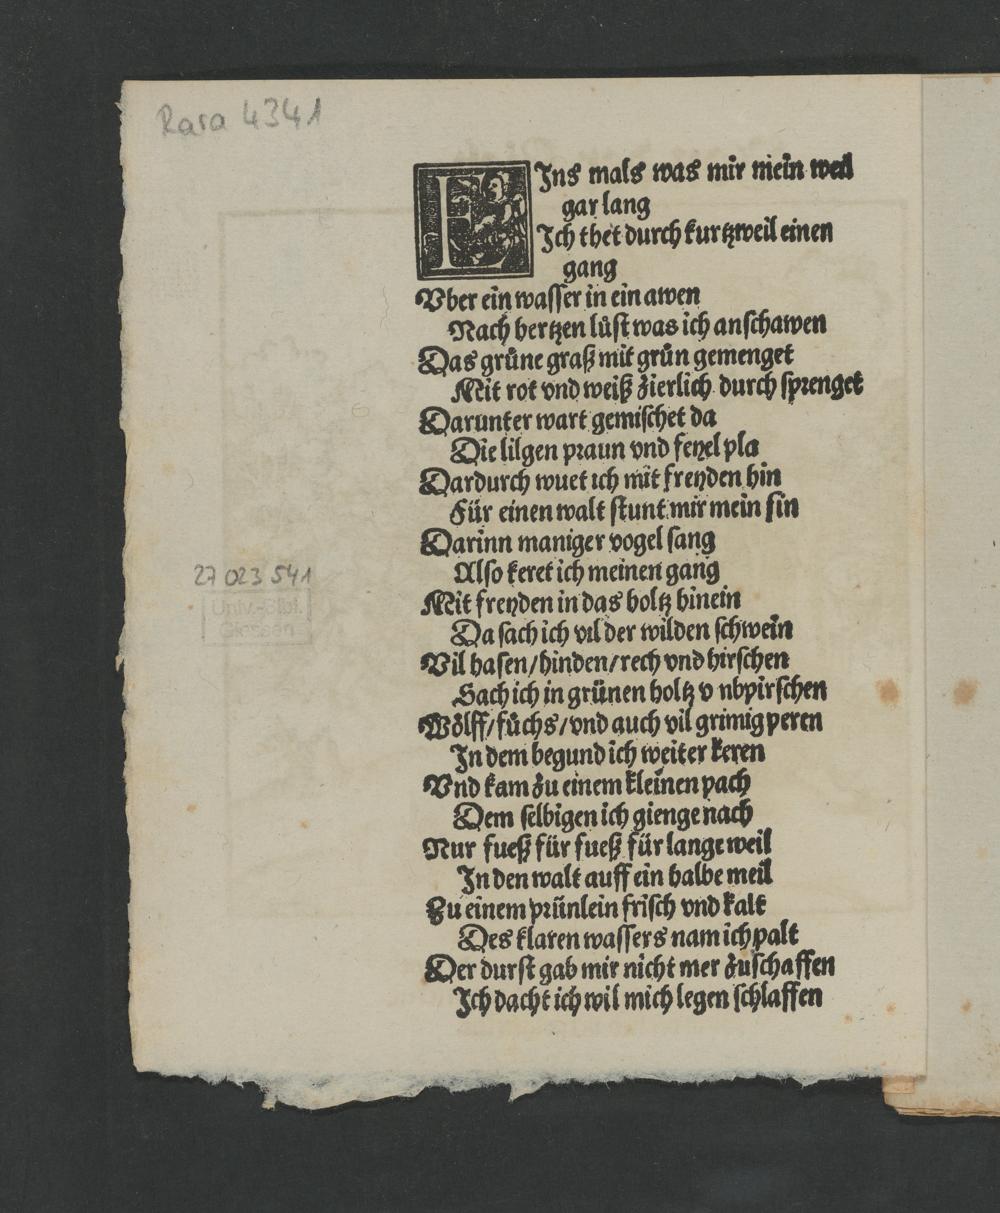 Rara 4341
EIns mals was mir mein weil
gar lang
Ich thet durch kurtzweil einen
gang
Vber ein wasser in ein awen
Nach hertzen lůst was ich anschawen
Das grüne graß mit grün gemenget
Mit rot vnd weiß zierlich durch sprenget
Darunter wart gemischet da
Die lilgen praun vnd feyel pla
Dardurch wuet ich mit freyden hin
Für einen walt stunt mir mein sin
Darinn maniger vogel sang
Also keret ich meinen gang
Mit freyden in das holtz hinein
Da sach ich vil der wilden schwein
Vil hasen/hinden/rech vnd hirschen
Sach ich in grünen holtz v nbpirschen
Wölff/füchs/vnd auch vil grimig peren
In dem begund ich weiter keren
Vnd kam zu einem kleinen pach
Dem selbigen ich gienge nach
Nur fueß für fueß für lange weil
In den walt auff ein halbe meil
Zu einem prünlein frisch vnd kalt
Des klaren wassers nam ich palt
Der durst gab mir nicht mer zuschaffen
Ich dacht ich wil mich legen schlaffen
27 023 541
Univ.-Bibl.
Giessen